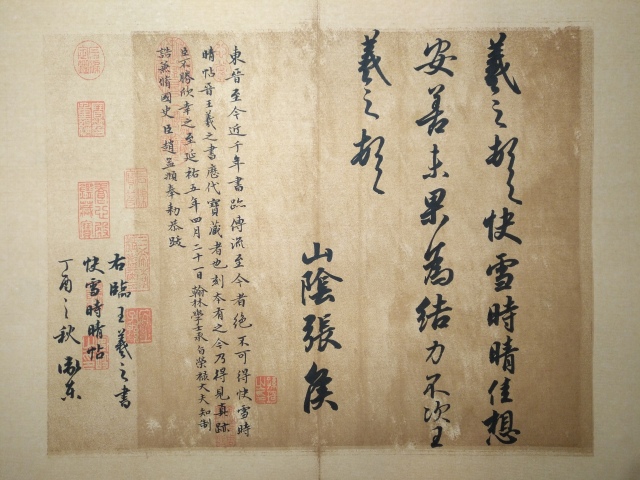 羲之頓首快雪時晴佳想
安善未果為結力不次王
羲之頓首
山陰張侯
東晉至今近千年書跡傳流至今者絕不可得快雪時
晴帖晉王羲之書歷代寶藏者也刻本有之今乃得見真跡
臣不勝欣幸之至延祐五年四月二十一日翰林學士承旨榮祿大夫知制
誥兼脩國史臣趙孟頫奉勅恭跋
右臨王羲之書
快雪時晴帖
丁酉之秋